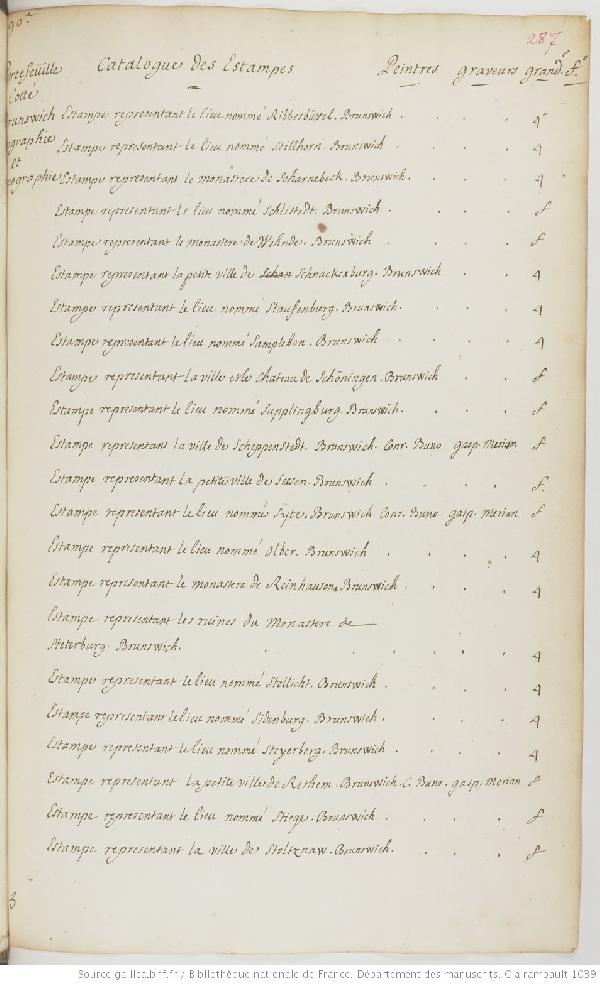 287
Catalogue des Estampes Peintres graveurs grandr fo
Portefeuille
Cotté
Brunswich
et
Estampe representant le lieu nommé Ribbesbüttel. Brunswich . . . 4°
Estampe representant le lieu nommé Stillhorn. Brunswich . . . 4
Estampe representant le monastere de Scharnebeck. Brunswich. . . . 4
Estampe representant le lieu nommé Schlistedt. Brunswich . . . f
Estampe representant le monastere de Wehnde. Brunswich . . . f
Estampe representant la petite ville de Schnackenburg. Brunswich . . 4
Estampe representant le lieu nommé Staufenburg. Brunswich. . . . 4
Estampe representant le lieu nommé Sampleben. Brunswich . . . 4
Estampe representant la ville et le Chateau de Schöningen. Brunswich . . f
Estampe representant le lieu nommé Supplingburg. Brunswich. . . . f
Estampe representant la ville de Scheppenstedt. Brunswich. Conr. Buno gasp. Merian f
Estampe representant la petite ville de Seesen. Brunswich . . . f.
Estampe representant le lieu nommé Syte. Brunswich. Conr. Buno. gasp. Merian f
Estampe representant le lieu nommé Olber. Brunswich . . . 4
Estampe representant le monastere de Reinhausen. Brunswich . . . 4
Estampe representant les ruines du Monastere de
Steterburg. Brunswich. . . . . . 4
Estampe representant le lieu nommé Stellicht. Brunswich . . . 4
Estampe representant le lieu nommé Sidenburg. Brunswich . . . 4
Estampe representant le lieu nommé Steyerberg. Brunswich . . . 4
Estampe representant la petite ville de Rethem. Brunswich. C. Buno. gasp. Merian f
Estampe representant le lieu nommé Stiege. Brunswich . . . f
Estampe representant la ville de Stoltznaw. Brunswich. . . . f
Source gallica.bnf.fr / Bibliothèque nationale de France. Département des manuscrits. Clairambault 1039